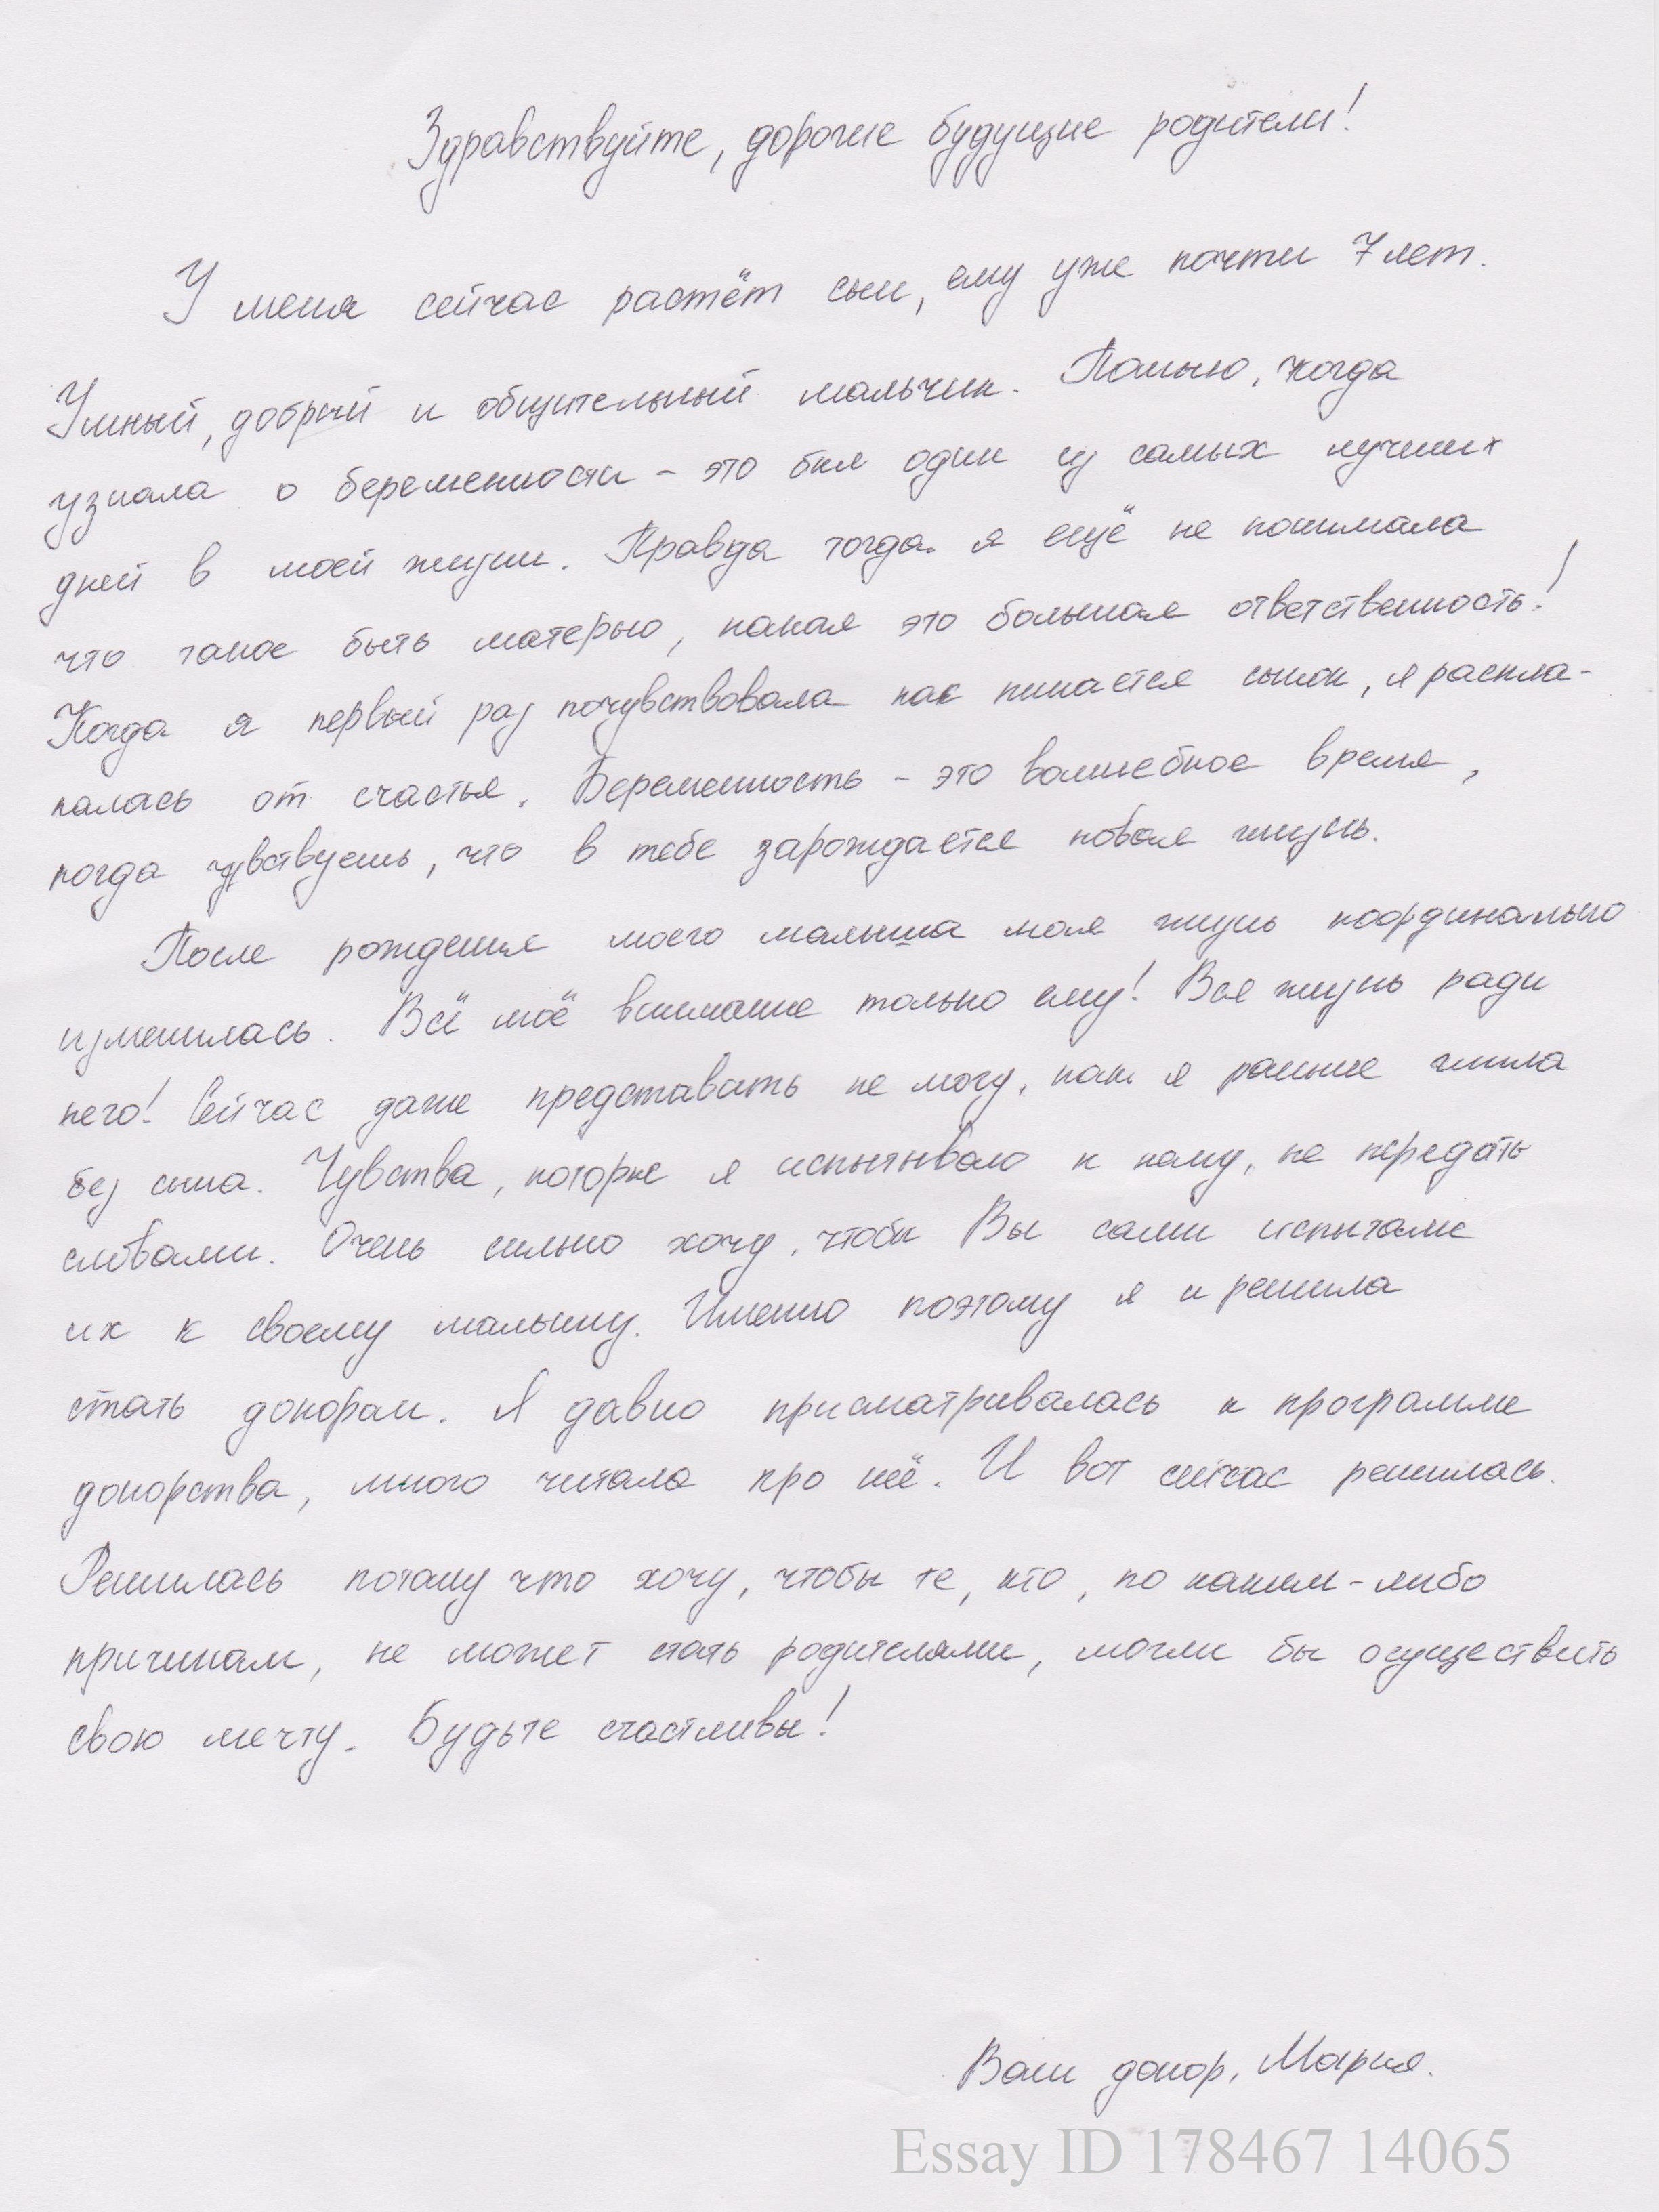 Здравствуйте, дорогие будущие родители!
У меня сейчас растёт сын, ему уже почти 7 лет.
Умный, добрый и общительный мальчик. Помню, когда
узнала о беременности – это был один из самых лучших
дней в моей жизни. Правда тогда я ещё не понимала
что такое быть матерью, какая это большая ответственность!
Когда я первый раз почувствовала как пинается сынок, я распла-
калась от счастья. Беременность – это волшебное время,
когда чувствуешь, что в тебе зарождается новая жизнь.
После рождения моего малыша моя жизнь координально
изменилась. Всё моё внимание только ему! Вся жизнь ради
него! Сейчас даже представать не могу, как я раньше жила
без сына. Чувства, которые я испытываю к нему, не передать
словами. Очень сильно хочу, чтобы Вы сами испытали
их к своему малышу. Именно поэтому я и решила
стать донором. Я давно присматривалась к программе
донорства, много читала про неё. И вот сейчас решилась.
Решилась потому что хочу, чтобы те, кто, по каким-либо
причинам, не может стать родителями, могли бы осуществить
свою мечту. Будьте счастливы!
Ваш донор, Мария.
Essay ID 178467 14065